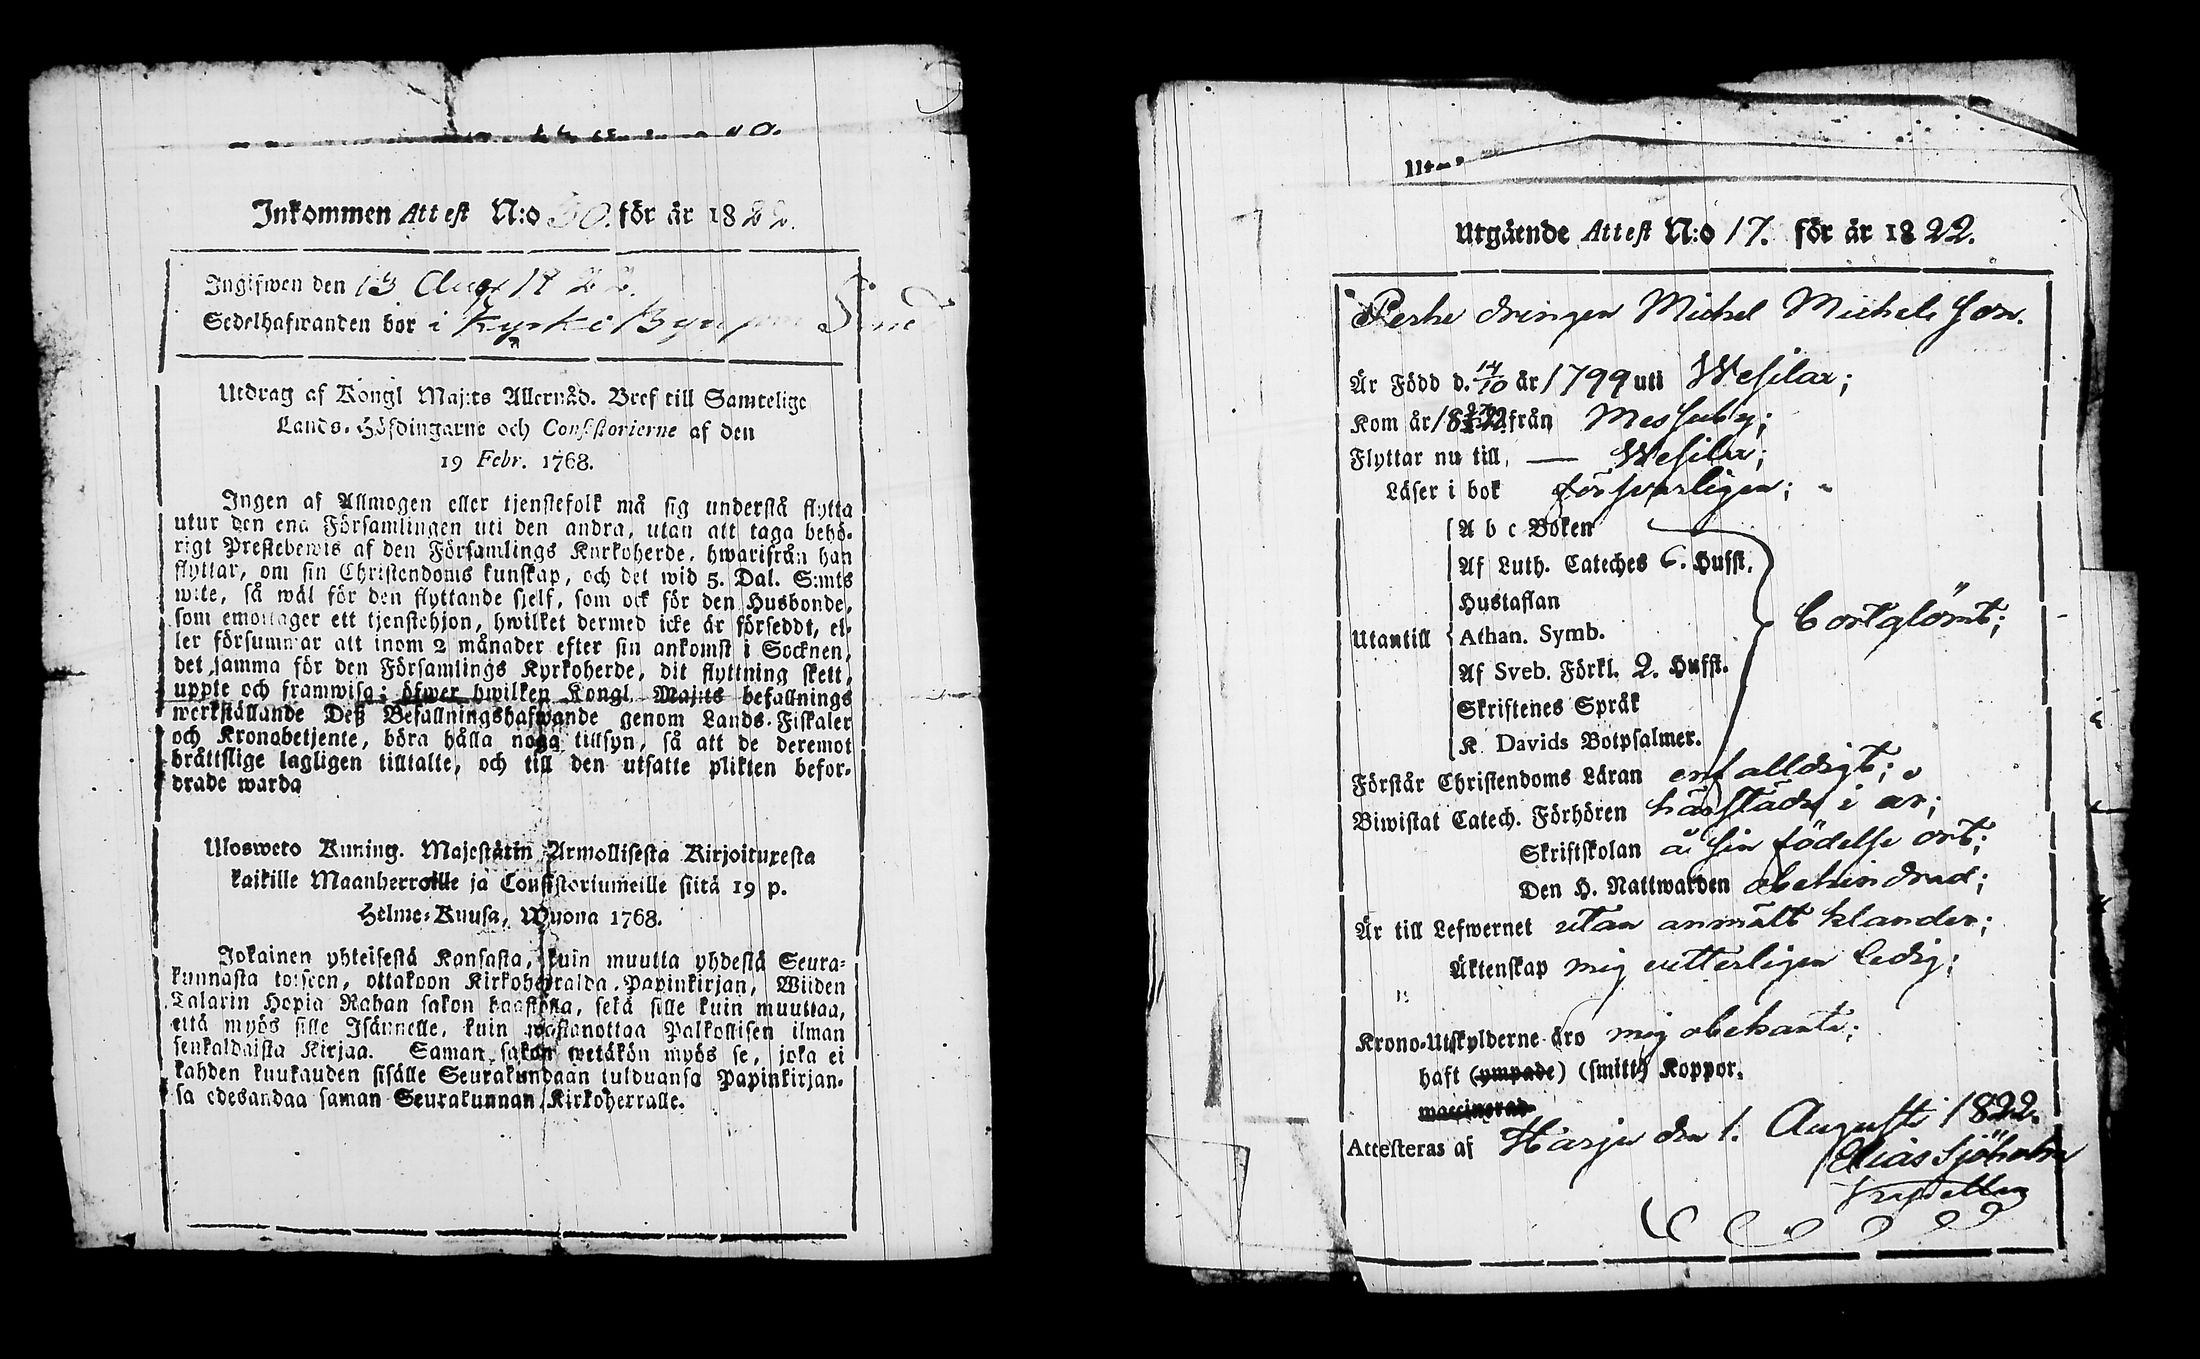 Inkommen Attest N:o 30. för år 1822.
Ingifwen den 13 Aug 1822.
Sedelhafwanden bor i Kyrkoby
Utdrag af Kongl Maj:ts Allernåd. Bref till Samtelige
Lands-Höfdingarne och Consistorierne af den
19 Febr. 1768.
Ingen af Allmogen eller tjenstefolk må sig understå flytta
utur den ena Församlingen uti den andra, utan att taga behö-
rigt Prestebewis af den Församlings Kyrkoherde, hwarifrån han
flyttar, om sin Christendoms kunskap, och det wid 5. Dal. S:mts
wite, så wäl för den flyttande sjelf, som ock för den Husbonde,
som emottager ett tjenstehjon, hwilket dermed icke är försedt, el-
ler försummar att inom 2 månader efter sin ankomst i Socknen,
det samma för den Församlings Kyrkoherde, dit flyttning skett,
uppte och framwisa; öfwer hwilken Kongl. Maj:ts befallnings
werkställande Deß Befallningshafwande genom Lands-Fiskaler
och Kronobetjente, böra hålla noga tillsyn, så att de deremot
bråttslige lagligen tilltalte, och till den utsatte plikten befor-
drade warda
Ulosweto Kuning. Majestätin Armollisesta Kirjoituxesta
kaikille Maanherroille ja Consistoriumeille siitä 19 p.
Helme-Kuusa, Wuona 1768.
Jokainen yhteisestä Kansasta, kuin muutta yhdestä Seura-
kunnasta toiseen, ottakoon Kirkoherralda Papinkirjan, Wiiden
Talarin Hopia Rahan sakon haastolla, sekä sille kuin muuttaa,
että myös sille Isännelle, kuin wastanottaa Palkollisen ilman
senkaldaista Kirjaa. Saman sakon wetäkön myös se, joka ei
kahden kuukauden sisälle Seurakundaan tulduansa Papinkirjan-
sa edesandaa saman Seurakunnan Kirkoherralle.
Utgäende Attest N:o 17. för år 1822.
drängen Michel Michels Son.
Är Född d. 14/10 år 1799 uti Wesilax;
Kom år 1822 från Messuby;
Flyttar nu till, — Wesilax;
Läser i bok försvarligen;
A b c Boken
Af Luth. Cateches 6. Hufst.
Hustaflan
Utantill Athan. Symb. bortglömt;
Af Sveb. Förkl. 2. Hufst.
Skriftenes Språk
K. Davids Botpsalmer.
Förstår Christendoms Läran enfalldigt;
Biwistat Catech. Förhören härstädes i år;
Skriftskolan å sin födelse ort;
Den H. Nattwarden obehindrad;
Är till Lefwernet utan anmält klander;
Äktenskap mig vitterligen ledig;
Krono-Utskylderne äro mig obekante;
haft (ympade) (smitt) Koppor.
waccinerad
Attesteras af Harju den 1. Augusti 1822.
Elias Sjöholm